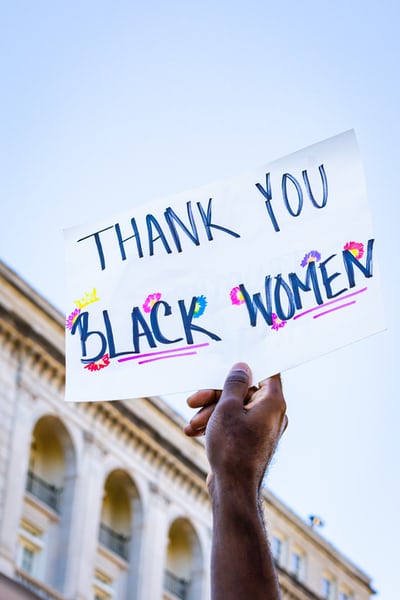 THANK YOU
BLACK WOMEN